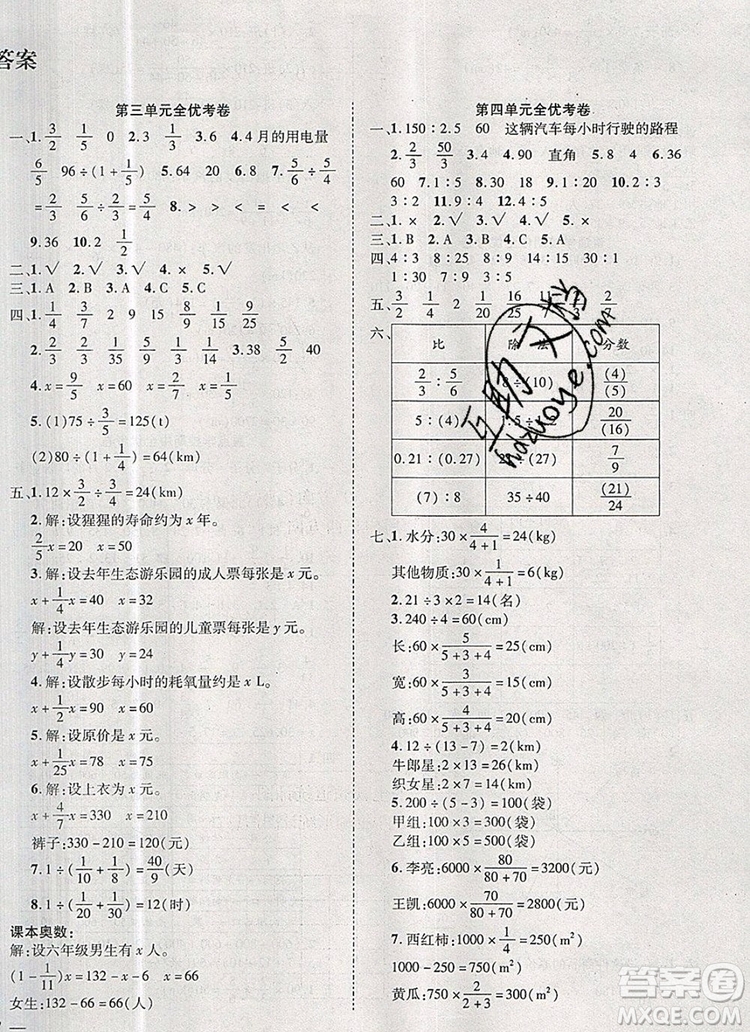 答案
第三单元全优考卷
一、1. 3/2 1/2 0 2. 3 1/3 3. 6 4. 4月的用电量
6/5 96÷(1+1/5) 5. 64 20 6. 9/25 7. ÷
= 2/3 = 2/5 ÷ 5/4 8. > > = < <
9. 36 10. 2 1/2
二、1. √ 2. √ 3. √ 4. × 5. √
三、1. A 2. B 3. C 4. B 5. C
四、1. 1/4 1/9 15 1/8 1/15 9/25
2. 4/15 1/3 1/2 1/15 1/3 3. 38 1/30
4. x= 9/5 x= 4/3 x= 2/7 x= 3/4
5. (1)75÷ 3/5 =125(t)
(2)80÷(1- 1/4 )= 320/3 (km)
五、1. 12× 3/2 ÷ 3/4 =24(km)
2. 解:设猩猩的寿命约为x年。
2/5 x=20 x=50
3. 解:设去年生态游乐园的成人票每张是x元。
x+ 1/4 x=40 x=32
解:设去年生态游乐园的儿童票每张是y元。
y+ 1/4 y=20 y=16
4. 解:设散步每小时的耗氧量约是x L。
x+ 1/2 x=30 x=20
5. 解:设原价是x元。
x- 1/26 x=75 x=78
6. 解:设上衣为x元。
x+ 4/7 x=330 x=210
裤子:330-210=120(元)
7. 1÷( 1/10 + 1/30 )= 15/2 (天)
8. 1÷( 1/20 + 1/30 )=12(时)
课本奥数:
解:设六年级男生有x人。
(1- 1/11 )x=132-x-6 x=66
女生:132-66=66(人)
第四单元全优考卷
一、1. 150∶2.5 60 这辆汽车每小时行驶的路程
2. 2/3 3. 4. 90 直角 5. 4 6. 36
60 7. 5∶1 8. 9. 18 10. 2∶3
11. 9∶10 12. 4∶5
二、1. × 2. √ 3. √ 4. × 5. √
三、1. B 2. A 3. C 4. B 5. C
四、4∶3 8∶25 1∶9 4∶9
1∶30 9∶8 1∶30
五、3/2 1/4 2 1/10 16/15 2/9
六、
比 除法 分数
2/3 ∶ 5/6 8÷(10) (4)/(5)
5∶(4) 20/(16)
0.21∶(0.27) 7/9
(7)∶8 35÷40 (21)/24
七、1. 水分:30× 4/(4+1) =24(kg)
其他物质:30× 1/(4+1) =6(kg)
2. 21÷3×2=14(名)
3. 240÷4=60(cm)
长:60× 5/(5+3+4) =25(cm)
宽:60× 3/(5+3+4) =15(cm)
高:60× 4/(5+3+4) =20(cm)
4. 12÷(13-7)=2(km)
牛郎星:2×7=14(km)
织女星:2×13=26(km)
5. 200÷(5-3)=100(袋)
甲组:100×5=500(袋)
乙组:100×3=300(袋)
6. 李亮:6000× 80/(80+70) =3200(元)
王凯:6000× 70/(80+70) =2800(元)
7. 西红柿:1000× 1/4 =250(m²)
1000-250=750(m²)
黄瓜:750× 2/(2+3) =300(m²)
互助文档
hdzuoye.com
答案圈
MXQE.COM